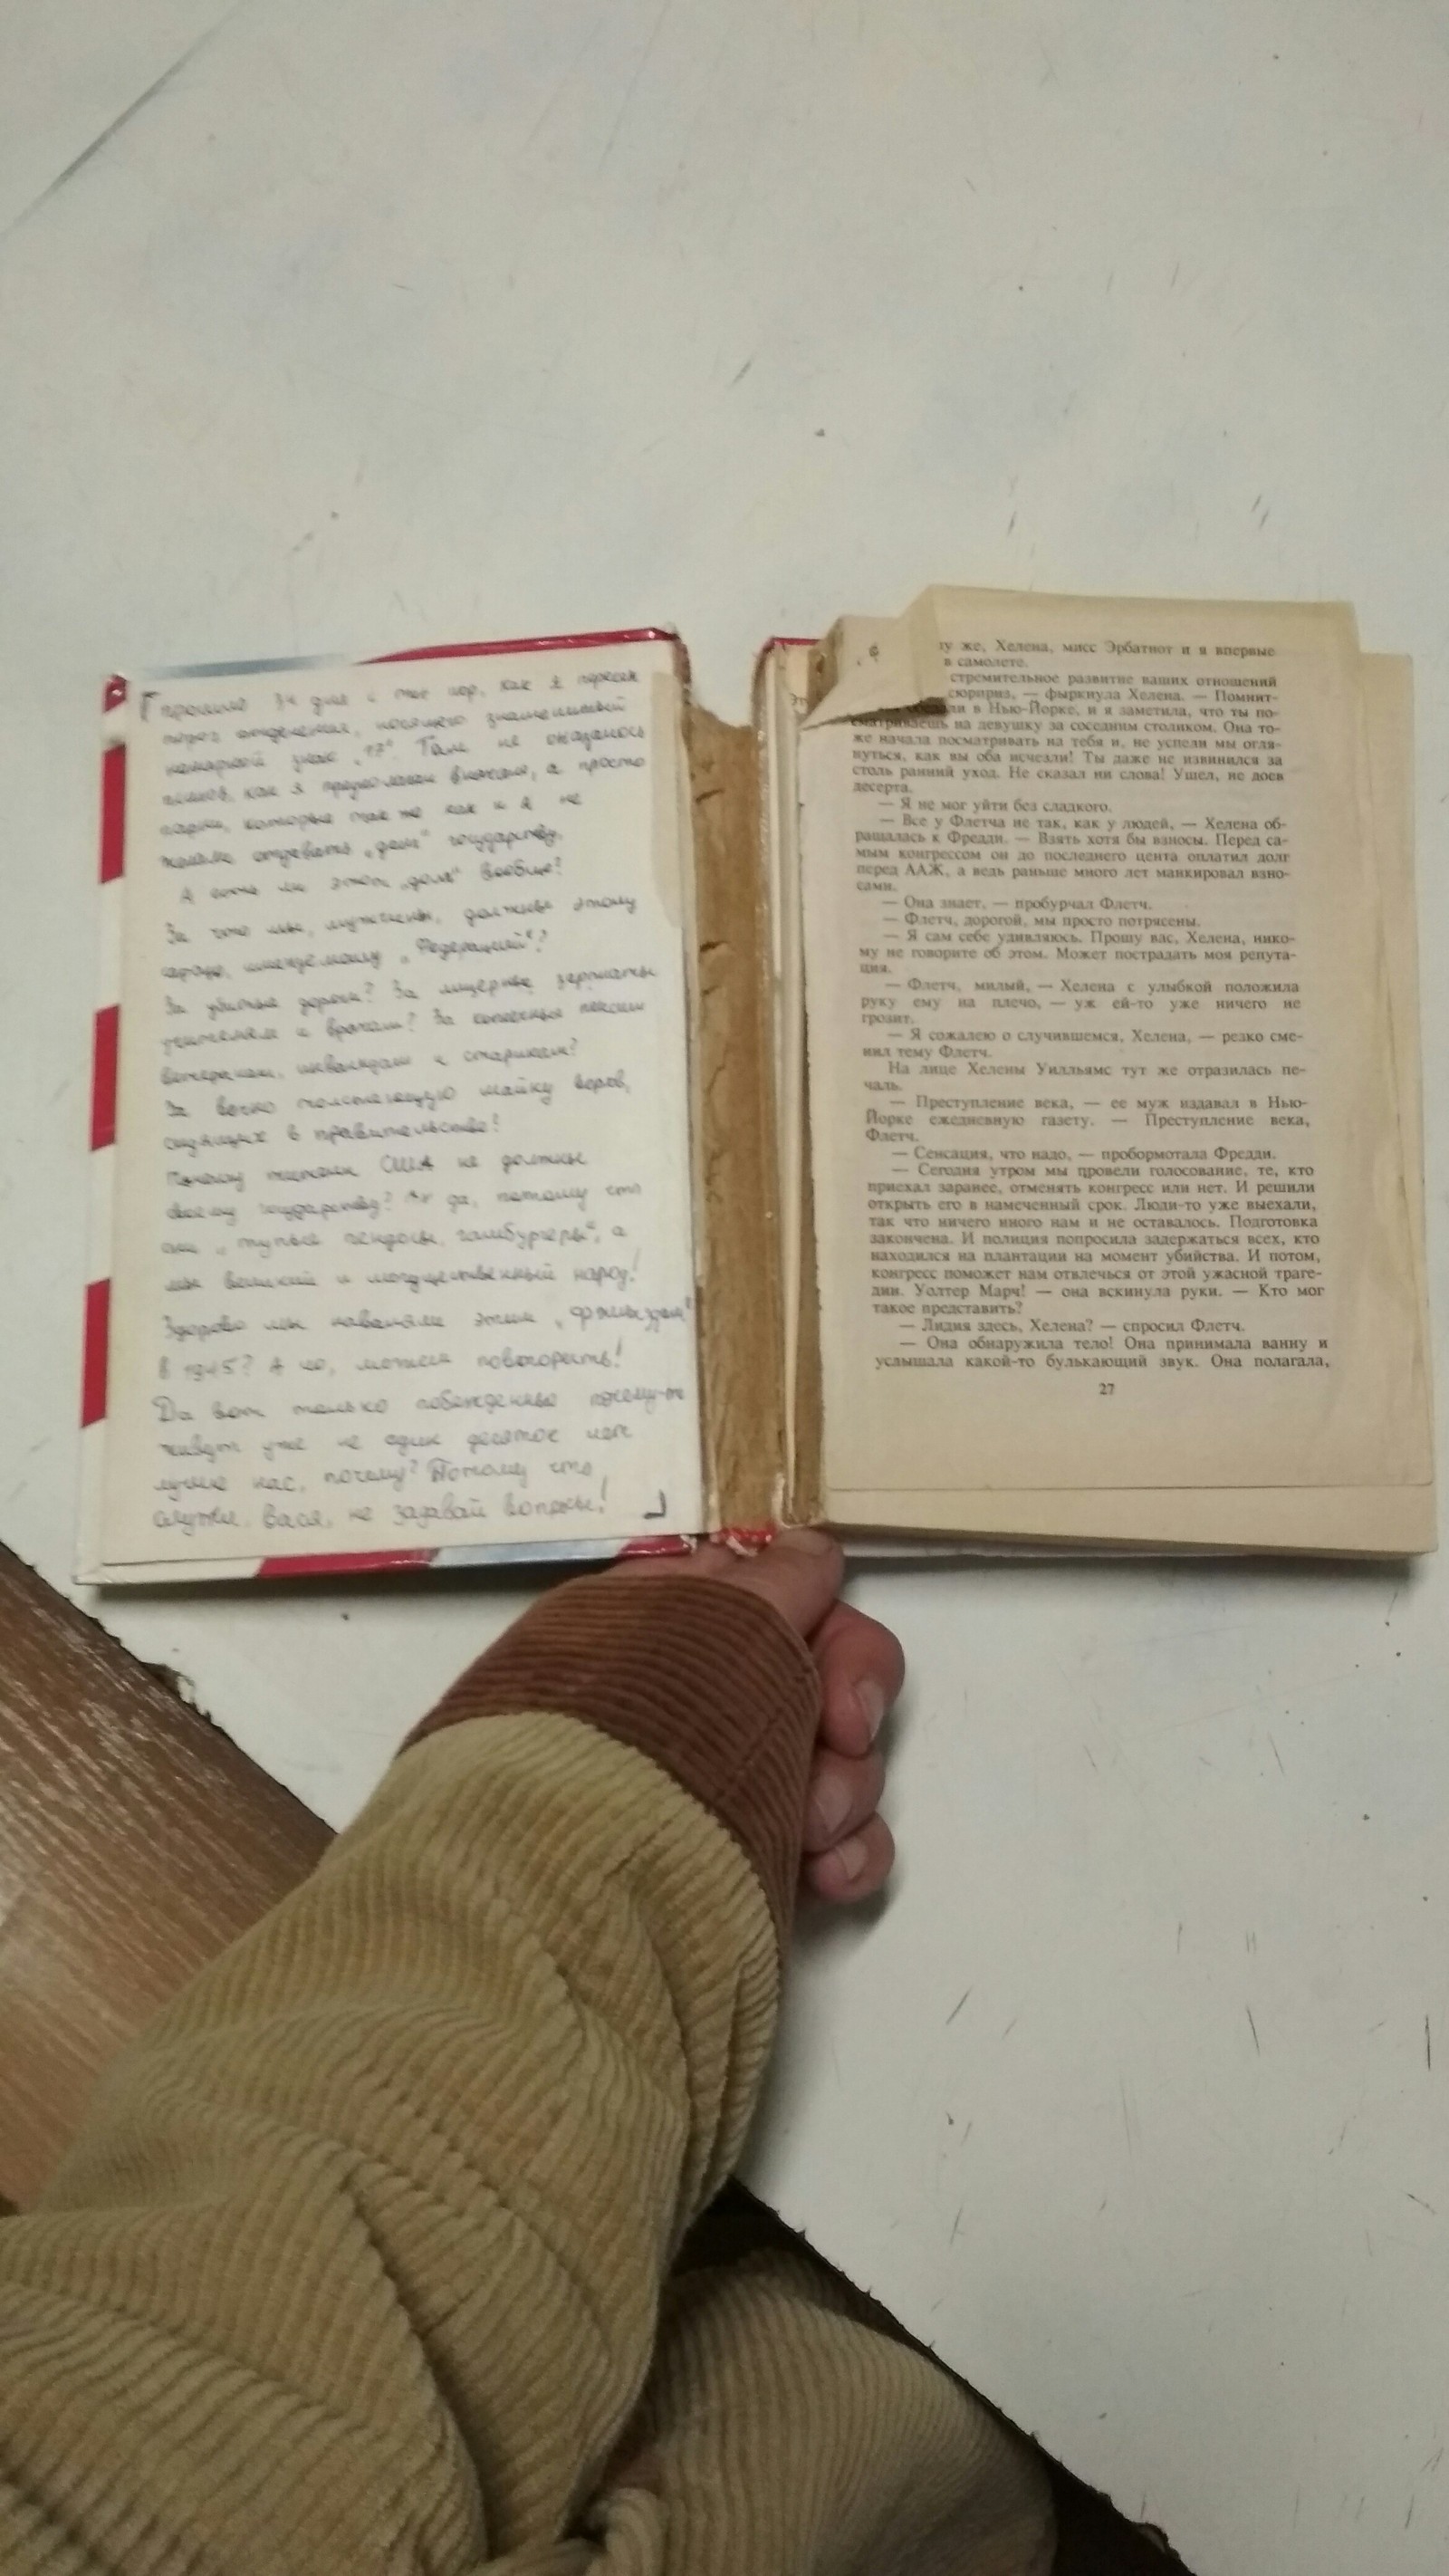 прошло 34 дня с тех пор, как я пересек
порог отделения, носящего знаменитый
номерной знак „17“ Там не оказалось
психов, как я предполагал вначале, а просто
парни, которые так же как и я не
желали отдавать „долг“ государству.
А есть ли этот „долг“ вообще?
За что мы, мужчины, должны этому
уроду, именуемому „Федерацией“?
За убитые дороги? За мизерные зарплаты
учителям и врачам? За копеечные пенсии
ветеранам, инвалидам и старикам?
За вечно толстеющую шайку воров,
сидящих в правительстве?
Почему жители США не должны
своему государству? Ах да, потому что
они „тупые пендосы, гамбургеры“, а
мы великий и могущественный народ!
Здорово мы наваляли этим
в 1945? А чо, можем повторить!
Да вот только побежденные почему-то
живут уже не один десяток лет
лучше нас, почему? Потому что
служи, Вася, не задавай вопросы!
Эт
му же, Хелена, мисс Эрбатнот и я впервые
в самолете.
стремительное развитие ваших отношений
сюрприз, — фыркнула Хелена. — Помнит-
в Нью-Йорке, и я заметила, что ты по-
сматриваешь на девушку за соседним столиком. Она то-
же начала посматривать на тебя и, не успели мы огля-
нуться, как вы оба исчезли! Ты даже не извинился за
столь ранний уход. Не сказал ни слова! Ушел, не доев
десерта.
— Я не мог уйти без сладкого.
— Все у Флетча не так, как у людей, — Хелена об-
ращалась к Фредди. — Взять хотя бы взносы. Перед са-
мым конгрессом он до последнего цента оплатил долг
перед ААЖ, а ведь раньше много лет манкировал взно-
сами.
— Она знает, — пробурчал Флетч.
— Флетч, дорогой, мы просто потрясены.
— Я сам себе удивляюсь. Прошу вас, Хелена, нико-
му не говорите об этом. Может пострадать моя репута-
ция.
— Флетч, милый, — Хелена с улыбкой положила
руку ему на плечо, — уж ей-то уже ничего не
грозит.
— Я сожалею о случившемся, Хелена, — резко сме-
нил тему Флетч.
На лице Хелены Уилльямс тут же отразилась пе-
чаль.
— Преступление века, — ее муж издавал в Нью-
Йорке ежедневную газету. — Преступление века,
Флетч.
— Сенсация, что надо, — пробормотала Фредди.
— Сегодня утром мы провели голосование, те, кто
приехал заранее, отменять конгресс или нет. И решили
открыть его в намеченный срок. Люди-то уже выехали,
так что ничего иного нам и не оставалось. Подготовка
закончена. И полиция попросила задержаться всех, кто
находился на плантации на момент убийства. И потом,
конгресс поможет нам отвлечься от этой ужасной траге-
дии. Уолтер Марч! — она вскинула руки. — Кто мог
такое представить?
— Лидия здесь, Хелена? — спросил Флетч.
— Она обнаружила тело! Она принимала ванну и
услышала какой-то булькающий звук. Она полагала,
27